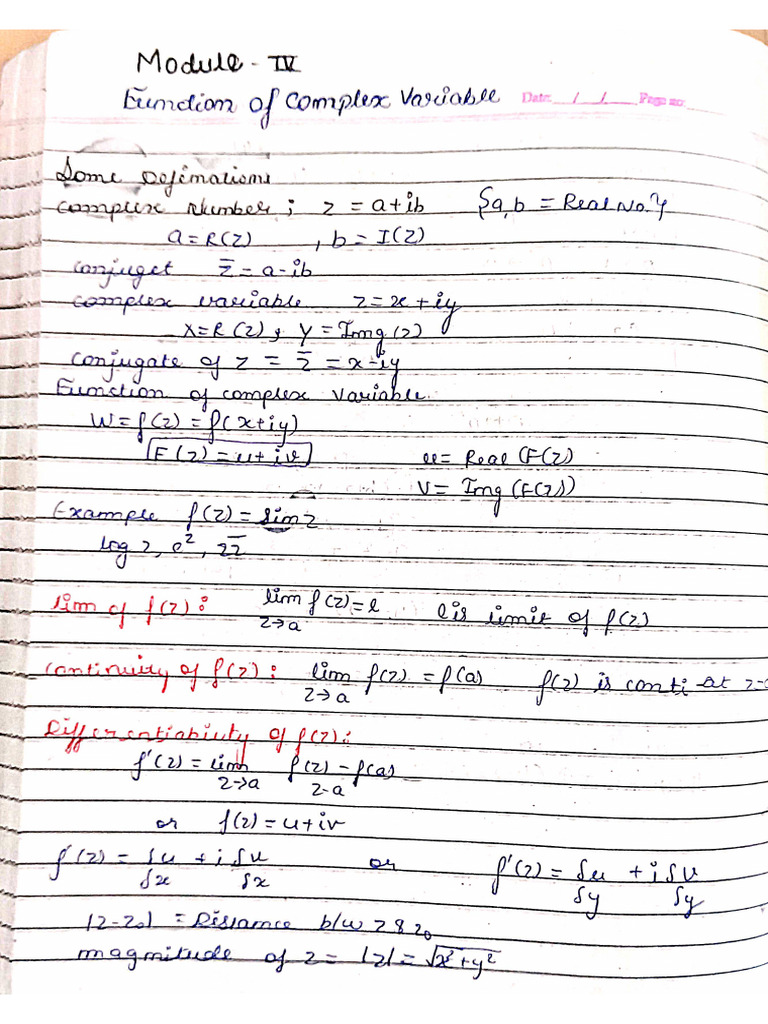 Module - IV
Function of Complex Variable Date: / / Page no:
Some Definations
complex Number ; z = a+ib {a,b = Real No.}
a = R(z) , b = I(z)
conjuget z̅ = a-ib
complex variable z = x + iy
x = R(z) , y = Img(z)
conjugate of z = z̅ = x-iy
Function of complex variable.
W = f(z) = f(x+iy)
F(z) = u+iv u = Real (F(z)
V = Img (F(z))
Example f(z) = sin z
log z, e^z, zz̅
lim of f(z) : lim f(z) = l l is limit of f(z)
z→a
continuity of f(z) : lim f(z) = f(a) f(z) is conti at
z→a
Differentiability of f(z):
f'(z) = lim f(z) - f(a)
z→a z-a
or f(z) = u+iv
f'(z) = δu + i δv or f'(z) = δu + i δv
δx δx δy δy
|z-z₀| = Distance b/w z & z₀
magnitude of z = |z| = √x²+y²